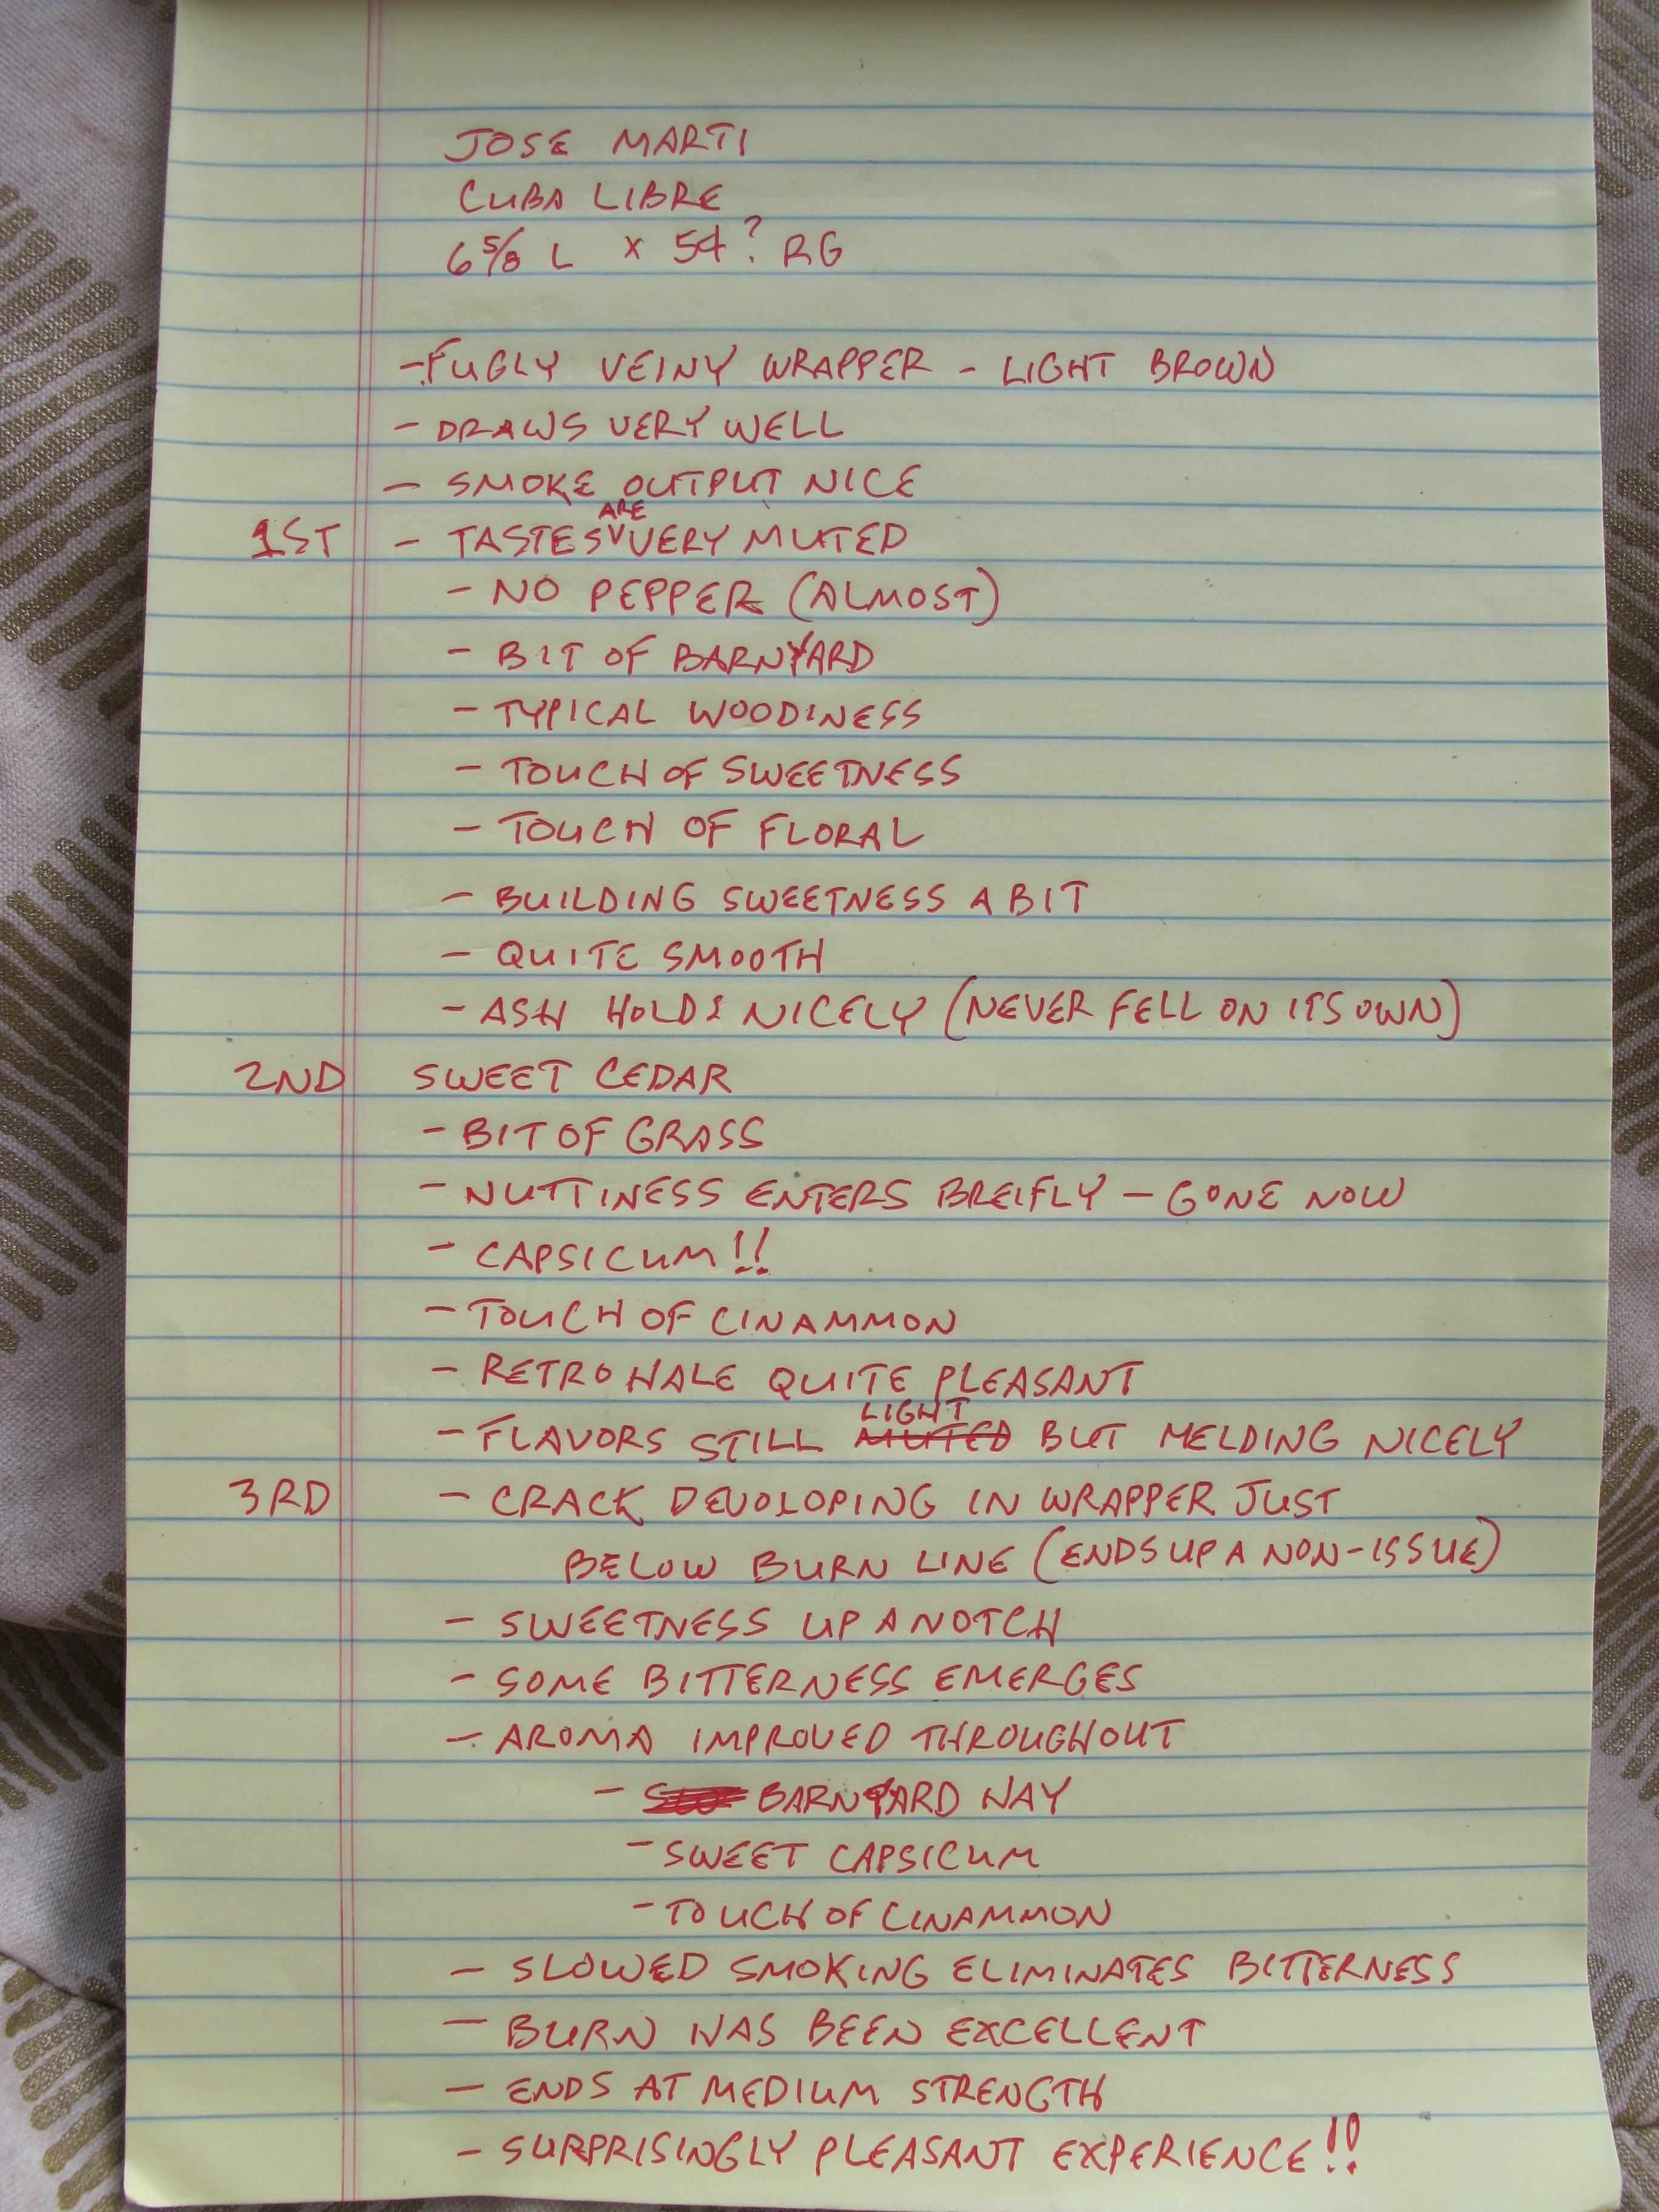 JOSE MARTI
CUBA LIBRE
6 5/8 L x 54? RG
- FUGLY VEINY WRAPPER - LIGHT BROWN
- DRAWS VERY WELL
- SMOKE OUTPUT NICE
1ST - TASTES ARE VERY MUTED
- NO PEPPER (ALMOST)
- BIT OF BARNYARD
- TYPICAL WOODINESS
- TOUCH OF SWEETNESS
- TOUCH OF FLORAL
- BUILDING SWEETNESS A BIT
- QUITE SMOOTH
- ASH HOLDS NICELY (NEVER FELL ON ITS OWN)
2ND SWEET CEDAR
- BIT OF GRASS
- NUTTINESS ENTERS BREIFLY - GONE NOW
- CAPSICUM!!
- TOUCH OF CINAMMON
- RETROHALE QUITE PLEASANT
- FLAVORS STILL MUTED LIGHT BUT MELDING NICELY
3RD - CRACK DEVOLOPING IN WRAPPER JUST
BELOW BURN LINE (ENDS UP A NON-ISSUE)
- SWEETNESS UP A NOTCH
- SOME BITTERNESS EMERGES
- AROMA IMPROVED THROUGHOUT
- BARNYARD HAY
- SWEET CAPSICUM
- TOUCH OF CINAMMON
- SLOWED SMOKING ELIMINATES BITTERNESS
- BURN HAS BEEN EXCELLENT
- ENDS AT MEDIUM STRENGTH
- SURPRISINGLY PLEASANT EXPERIENCE!!